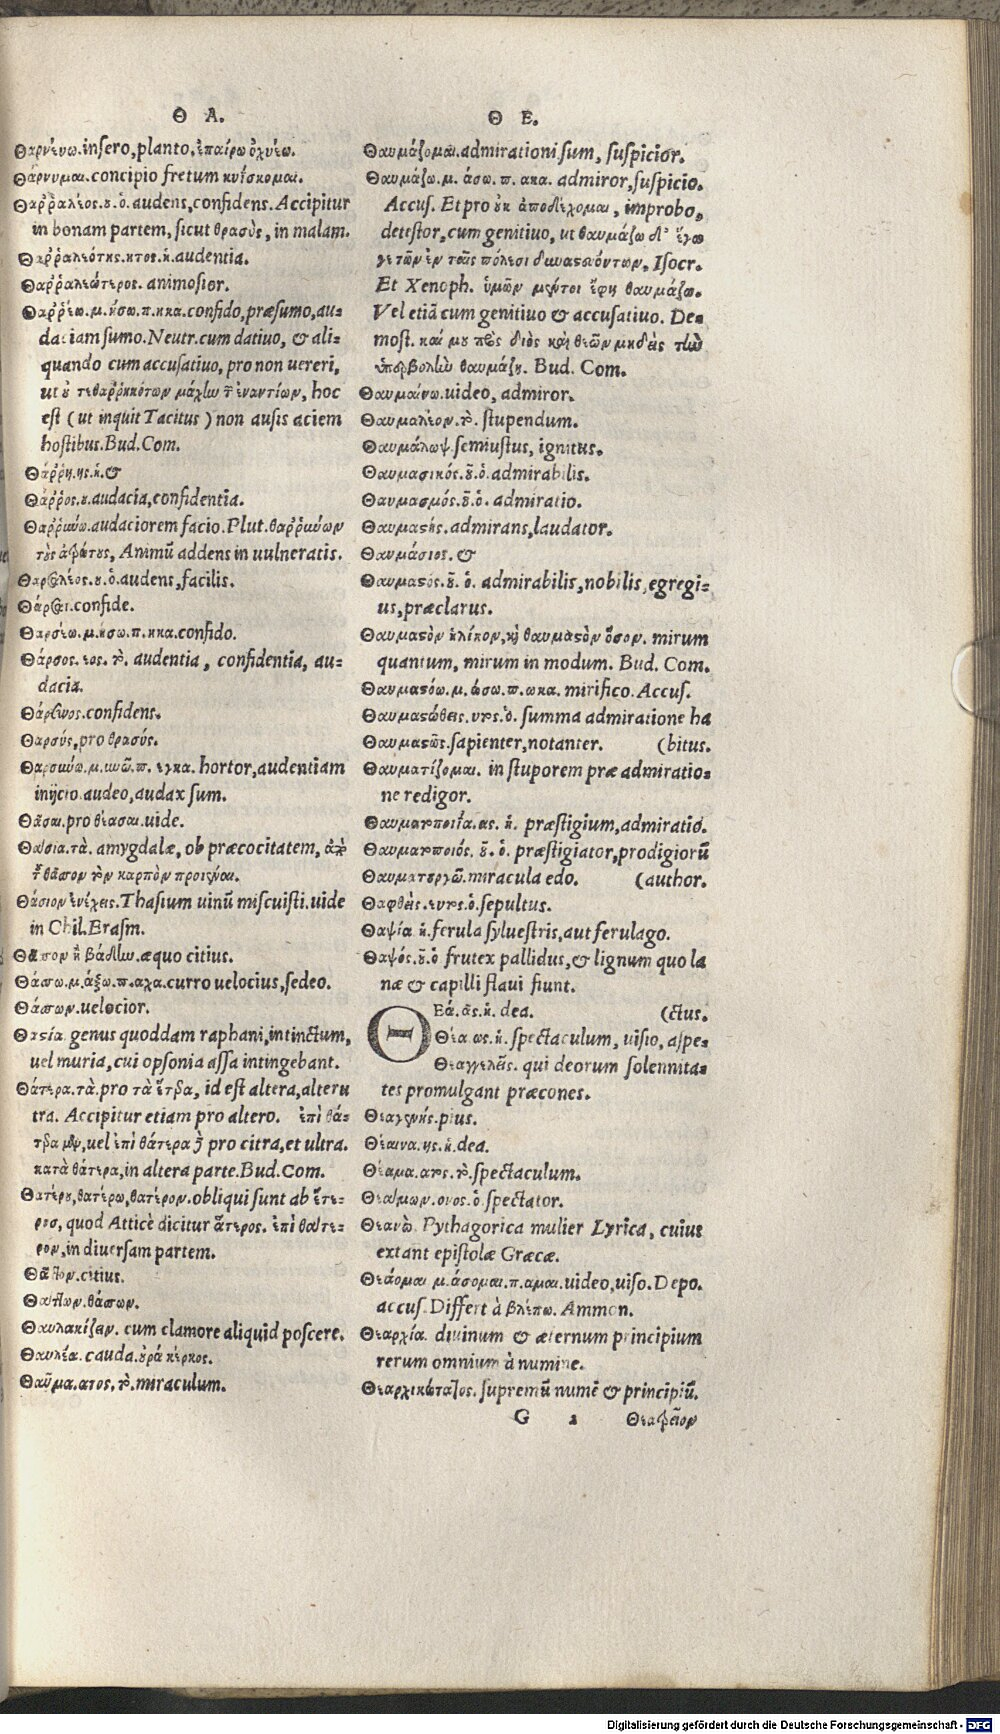 Θ Α.
Θαρνεύω. insero, planto, ἐπαίρω ὀχεύω.
Θάρνυμαι. concipio fretum κυΐσκομαι.
Θαῤῥαλέος. ου. ὁ. audens, confidens. Accipitur
in bonam partem, sicut θρασὺς, in malam.
Θαῤῥαλεότης. ητος. ἡ. audentia.
Θαῤῥαλεώτερος. animosior.
Θαῤῥέω. μ. ήσω. π. ηκα. confido, præsumo, au-
daciam sumo. Neutr. cum datiuo, & ali-
quando cum accusatiuo, pro non uereri,
ut οὐ τεθαῤῥηκότων μάχην τ ἐναντίων, hoc
est (ut inquit Tacitus) non ausis aciem
hostibus. Bud. Com.
Θάῤῥη. ης. ἡ. &
Θάῤῥος. ου. audacia, confidentia.
Θαῤῥύνω. audaciorem facio. Plut. θαῤῥύνων
τοὺς ἀτρώτους, Animũ addens in uulneratis.
Θαρσαλέος. ου. ὁ. audens, facilis.
Θάρσει. confide.
Θαρσέω. μ. ήσω. π. ηκα. confido.
Θάρσος. εος. τὸ. audentia, confidentia, au-
dacia.
Θάρσυνος. confidens.
Θαρσύς, pro θρασύς.
Θαρσύνω. μ. υνῶ. π. υγκα. hortor, audentiam
iniicio. audeo, audax sum.
Θᾶσαι. pro θέασαι. uide.
Θάσια. τὰ. amygdalæ, ob præcocitatem, παρὰ
τ θᾶσσον τὸν καρπὸν προιέναι.
Θάσιον ἐνέχεις. Thasium uinũ miscuisti. uide
in Chil. Erasm.
Θᾶσσον ἢ βάδην. æquo citius.
Θάσσω. μ. άξω. π. αχα. curro uelocius, sedeo.
Θάσσων. uelocior.
Θασία. genus quoddam raphani, intinctum,
uel muria, cui opsonia assa intingebant.
Θάτερα. τὰ. pro τὰ ἕτερα, id est altera, alteru
tra. Accipitur etiam pro altero. ἐπὶ θά-
τερα μὲν, uel ἐπὶ θάτερα δὲ pro citra, et ultra.
κατὰ θάτερα, in altera parte. Bud. Com.
Θατέρου, θατέρω, θατέρον. obliqui sunt ab ἕτε-
ρος, quod Atticè dicitur ἅτερος. ἐπὶ θατέ-
ρον, in diuersam partem.
Θᾶττον. citius.
Θάττων. θάσσων.
Θαυλακίζειν. cum clamore aliquid poscere.
Θαυλέα. cauda. οὐρά κέρκος.
Θαῦμα. ατος. τὸ. miraculum.
Θ Ε.
Θαυμάζομαι. admirationi sum, suspicior.
Θαυμάζω. μ. άσω. π. ακα. admiror, suspicio.
Accus. Et pro οὐκ ἀποδέχομαι, improbo,
detestor, cum genitiuo, ut θαυμάζω δ᾽ ἔγωγε
τῶν ἐν ταῖς πόλεσι δυναστευόντων, Isocr.
Et Xenoph. ὑμῶν μέντοι ἔφη θαυμάζω.
Vel etiã cum genitiuo & accusatiuo. De-
most. καί μου πρὸς διὸς καὶ θεῶν μηδεὶς τὴν
ὑπερβολὴν θαυμάζῃ. Bud. Com.
Θαυμαίνω. uideo, admiror.
Θαυμαλέον. τὸ. stupendum.
Θαυμάλωψ. semiustus, ignitus.
Θαυμασικός. οῦ. ὁ. admirabilis.
Θαυμασμός. οῦ. ὁ. admiratio.
Θαυμαστής. admirans, laudator.
Θαυμάσιος. &
Θαυμαστός. οῦ. ὁ. admirabilis, nobilis, egregi-
us, præclarus.
Θαυμαστὸν ἡλίκον, καὶ θαυμαστὸν ὅσον. mirum
quantum, mirum in modum. Bud. Com.
Θαυμαστόω. μ. ώσω. π. ωκα. mirifico. Accus.
Θαυμαστωθεὶς. εντος. ὁ. summa admiratione ha
Θαυμαστῶς. sapienter, notanter. (bitus.
Θαυματίζομαι. in stuporem præ admiratio-
ne redigor.
Θαυματοποιΐα. ας. ἡ. præstigium, admiratio.
Θαυματοποιός. οῦ. ὁ. præstigiator, prodigiorũ
Θαυματουργῶ. miracula edo. (author.
Θαφθεὶς. εντος. ὁ. sepultus.
Θαψία ἡ. ferula syluestris, aut ferulago.
Θαψός. οῦ. ὁ frutex pallidus, & lignum quo la
næ & capilli flaui fiunt.
ΘΕά. ᾶς. ἡ. dea. (ctus.
Θέα ας. ἡ. spectaculum, uisio, aspe-
Θεαγγελεῖς. qui deorum solennita-
tes promulgant præcones.
Θεαγενής. pius.
Θέαινα. ης. ἡ. dea.
Θέαμα. ατος. τὸ. spectaculum.
Θεάμων. ονος. ὁ. spectator.
Θεανὼ. Pythagorica mulier Lyrica, cuius
extant epistolæ Græcæ.
Θεάομαι μ. άσομαι. π. αμαι. uideo, uiso. Depo.
accus. Differt à βλέπω. Ammon.
Θεαρχία. diuinum & æternum principium
rerum omnium à numine.
Θεαρχικώτατος. supremũ numẽ & principiũ.
G 2 Θεατρεῖον
Digitalisierung gefördert durch die Deutsche Forschungsgemeinschaft - DFG